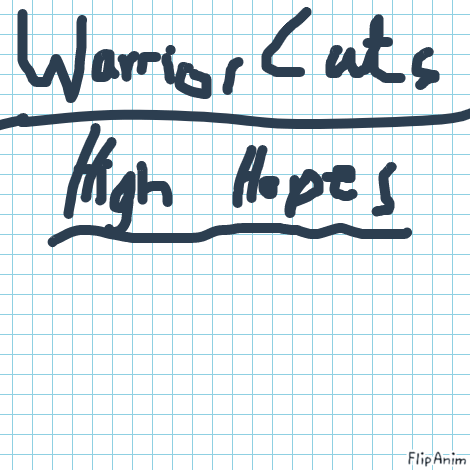 Warrior Cats
High Hopes
FlipAnim